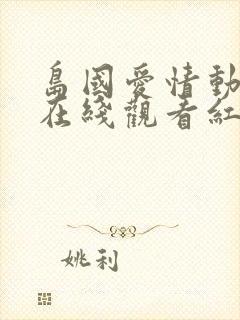 島國愛情動
在綫觀看紅
姚利